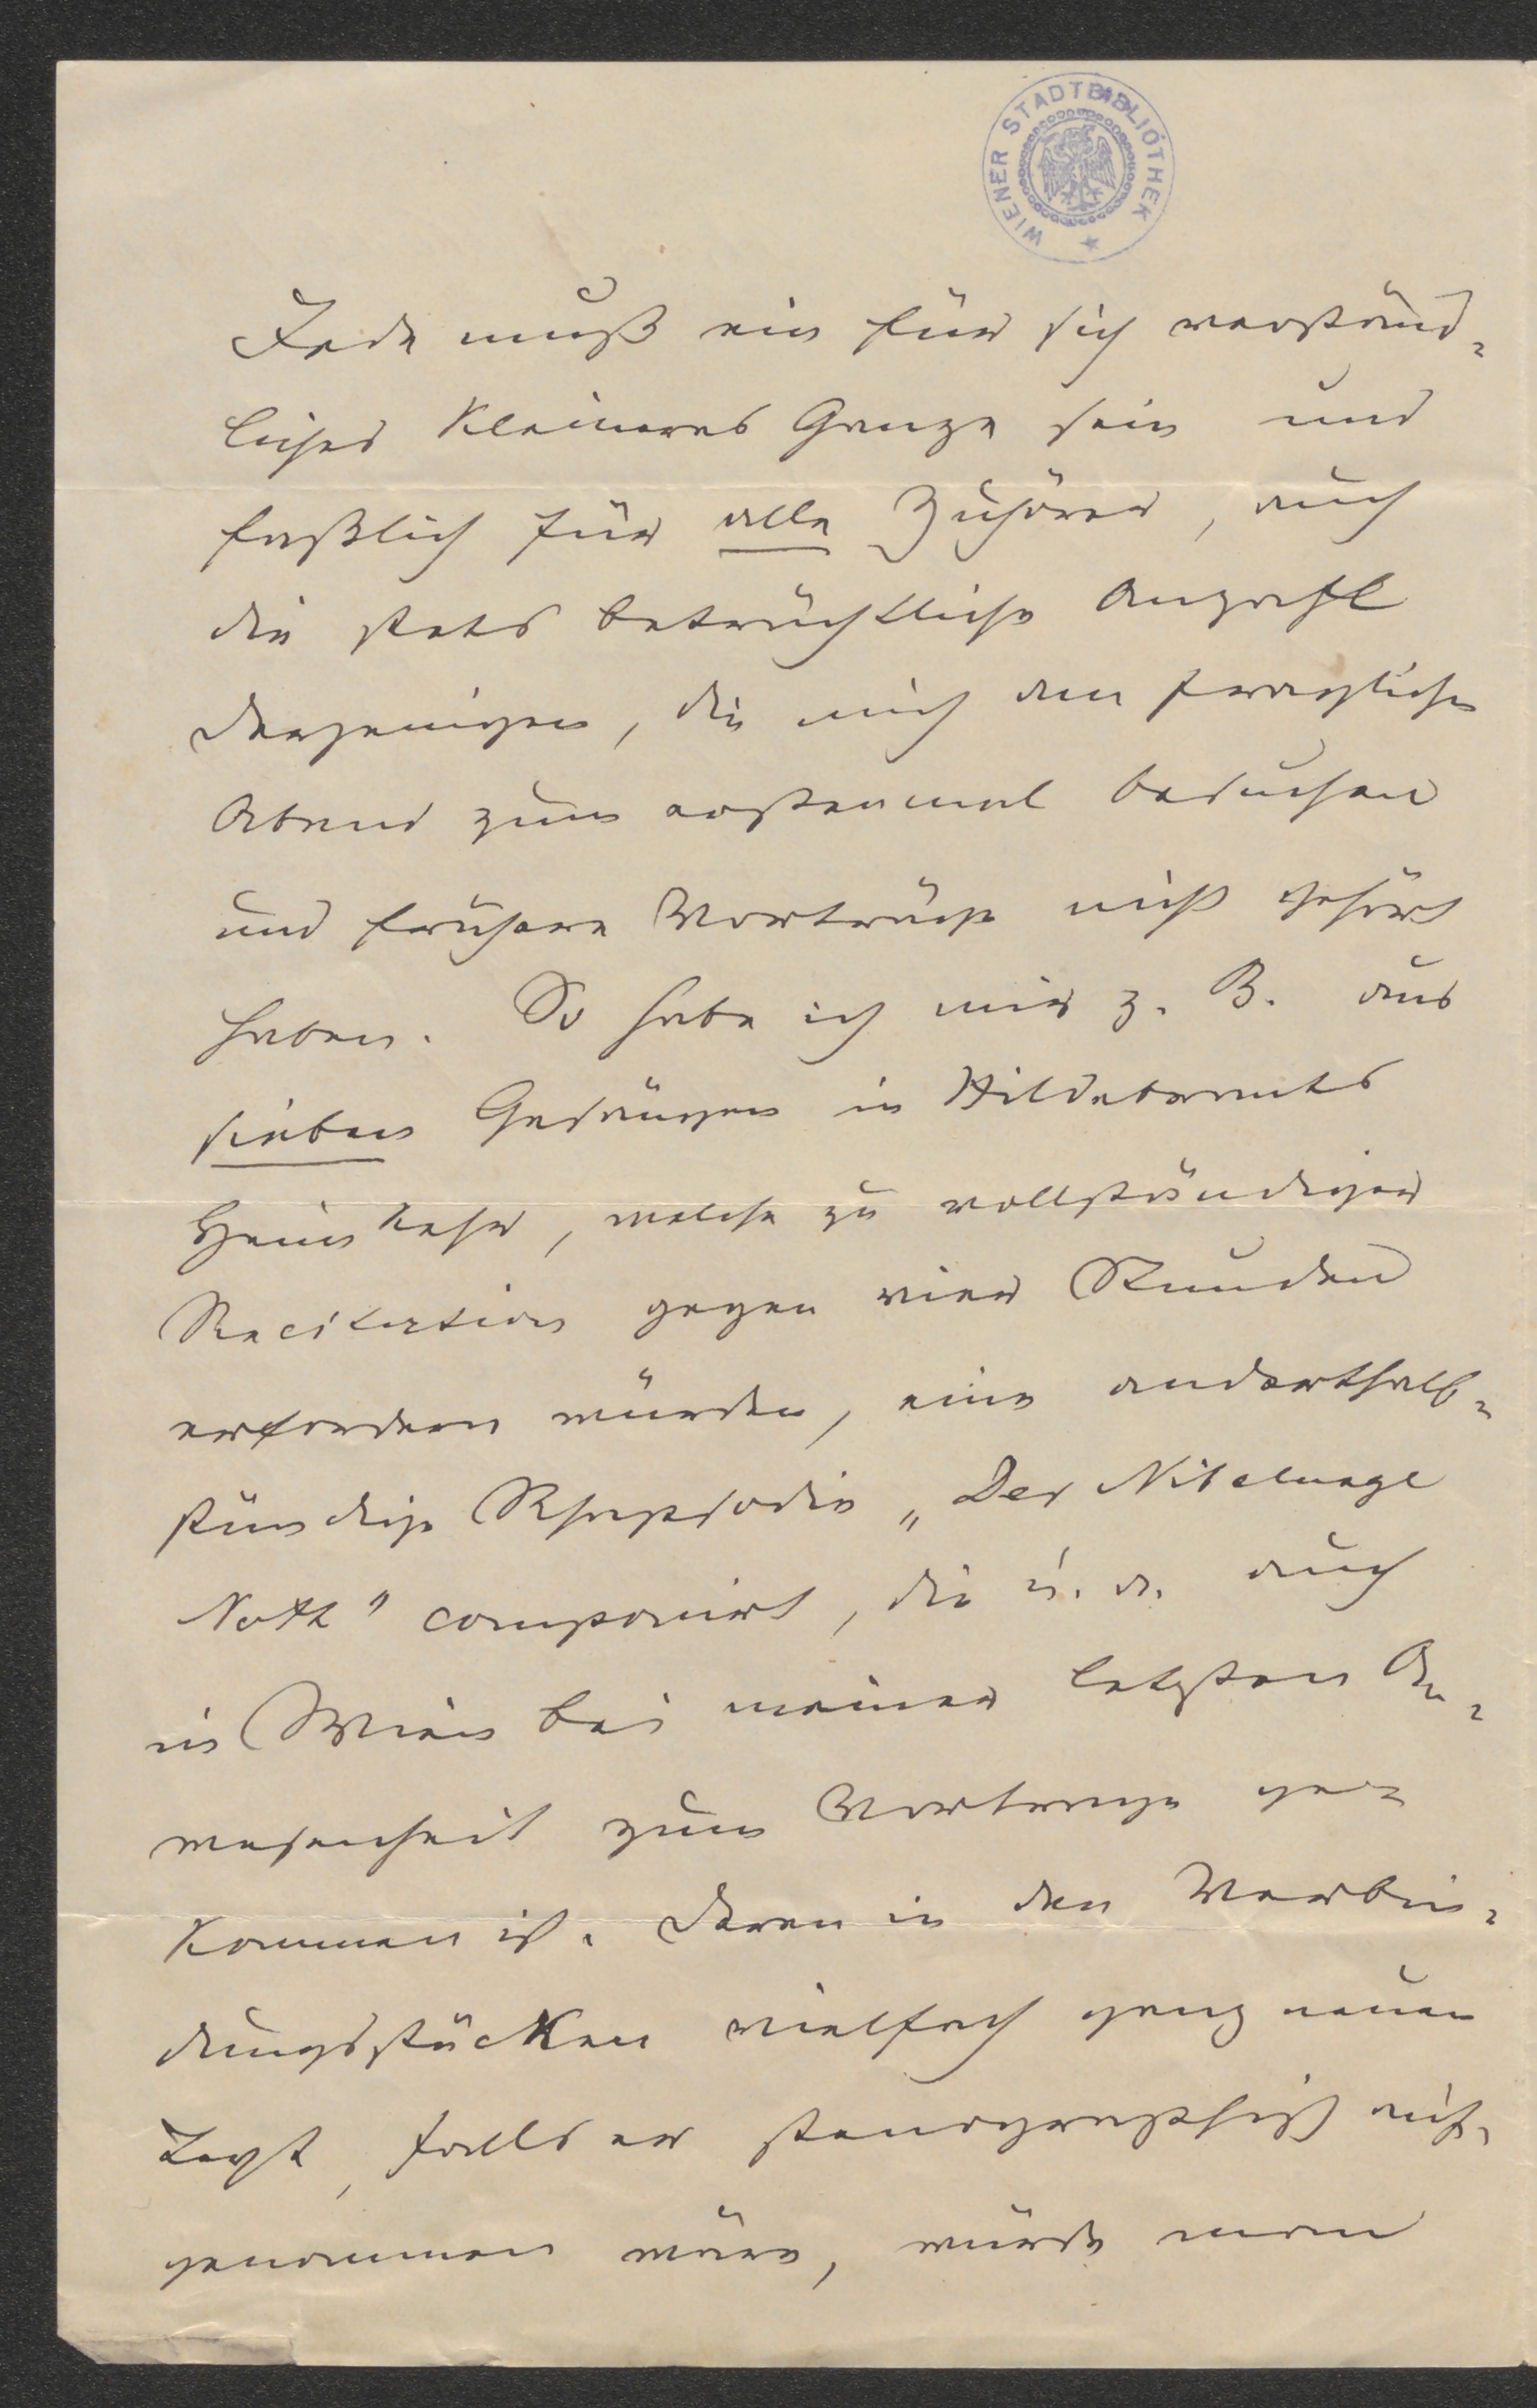 WIENER STADTBIBLIOTHEK
Jede muß ein für sich verständ-
liches kleineres Ganze sein und
faßlich für alle Zuhörer, auch
die stets beträchtliche Anzahl
derjenigen, die mich am fraglichen
Abend zum erstenmal besuchen
und frühere Vorträge nicht gehört
haben. So habe ich mir z. B. aus
sieben Gesängen in Hildebrants
Heimkehr, welche zu vollständiger
Recitation gegen vier Stunden
erfordern würden, eine anderthalb-
stündige Rhapsodie „Der Nibelunge
Noth" componirt, die u. a. auch
in Wien bei meiner letzten An-
wesenheit zum Vortrage ge-
kommen ist. Deren in den Verbin-
dungsstücken vielfach ganz neuen
Text, falls er stenographisch auf-
genommen wäre, würde man